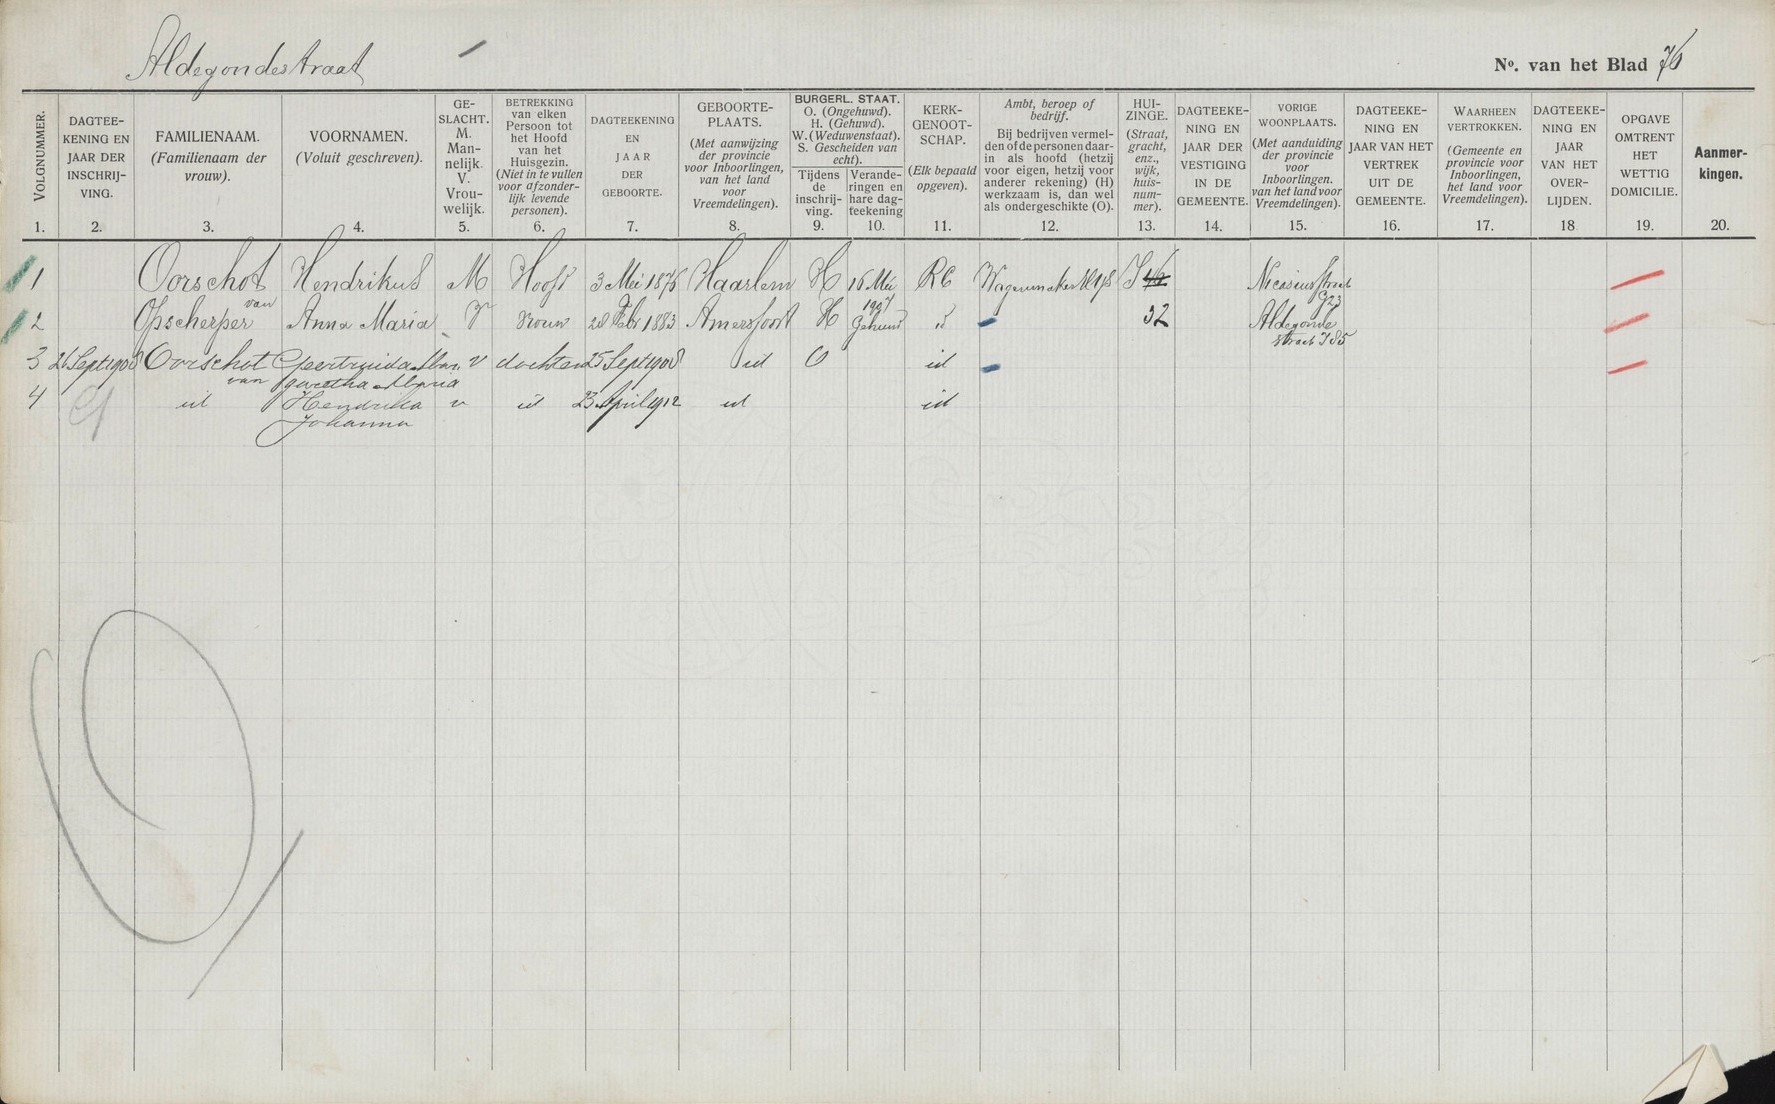 Aldegondestraat
Nº. van het Blad 76
VOLGNUMMER.
1.
DAGTEE-
KENING EN
JAAR DER
INSCHRIJ-
VING.
2.
FAMILIENAAM.
(Familienaam der
vrouw).
3.
VOORNAMEN.
(Voluit geschreven).
4.
GE-
SLACHT.
M.
Man-
nelijk.
V.
Vrou-
welijk.
5.
BETREKKING
van elken
Persoon tot
het Hoofd
van het
Huisgezin.
(Niet in te vullen
voor afzonder-
lijk levende
personen).
6.
DAGTEEKENING
EN
JAAR
DER
GEBOORTE.
7.
GEBOORTE-
PLAATS.
(Met aanwijzing
der provincie
voor Inboorlingen,
van het land
voor
Vreemdelingen).
8.
BURGERL. STAAT.
O. (Ongehuwd).
H. (Gehuwd).
W. (Weduwenstaat).
S. Gescheiden van
echt).
Tijdens
de
inschrij-
ving.
9.
Verande-
ringen en
hare dag-
teekening
10.
KERK-
GENOOT-
SCHAP.
(Elk bepaald
opgeven).
11.
Ambt, beroep of
bedrijf.
Bij bedrijven vermel-
den of de personen daar-
in als hoofd (hetzij
voor eigen, hetzij voor
anderer rekening) (H)
werkzaam is, dan wel
als ondergeschikte (O).
12.
HUI-
ZINGE.
(Straat,
gracht,
enz.,
wijk,
huis-
num-
mer).
13.
DAGTEEKE-
NING EN
JAAR DER
VESTIGING
IN DE
GEMEENTE.
14.
VORIGE
WOONPLAATS.
(Met aanduiding
der provincie
voor
Inboorlingen.
van het land voor
Vreemdelingen).
15.
DAGTEEKE-
NING EN
JAAR VAN HET
VERTREK
UIT DE
GEMEENTE.
16.
WAARHEEN
VERTROKKEN.
(Gemeente en
provincie voor
Inboorlingen,
het land voor
Vreemdelingen).
17.
DAGTEEKE-
NING EN
JAAR
VAN HET
OVER-
LIJDEN.
18
OPGAVE
OMTRENT
HET
WETTIG
DOMICILIE.
19.
Aanmer-
kingen.
20.
1 Oorschot Hendrikus M Hoofd 3 Mei 1876 Haarlem H 16 Mei RC Wagenmaker J Nicasiusstraat
van 1907 G23
2 Opscherper Anna Maria V Vrouw 28 Febr 1883 Amersfoort H Gehuwd id 32 Aldegonde
straat J85
3 26 Sept 1908 Oorschot Geertruida Mar V dochter 25 Sept 1908 id O id
van garetha Maria
4 id Hendrika v id 23 April 1912 id id
Johanna